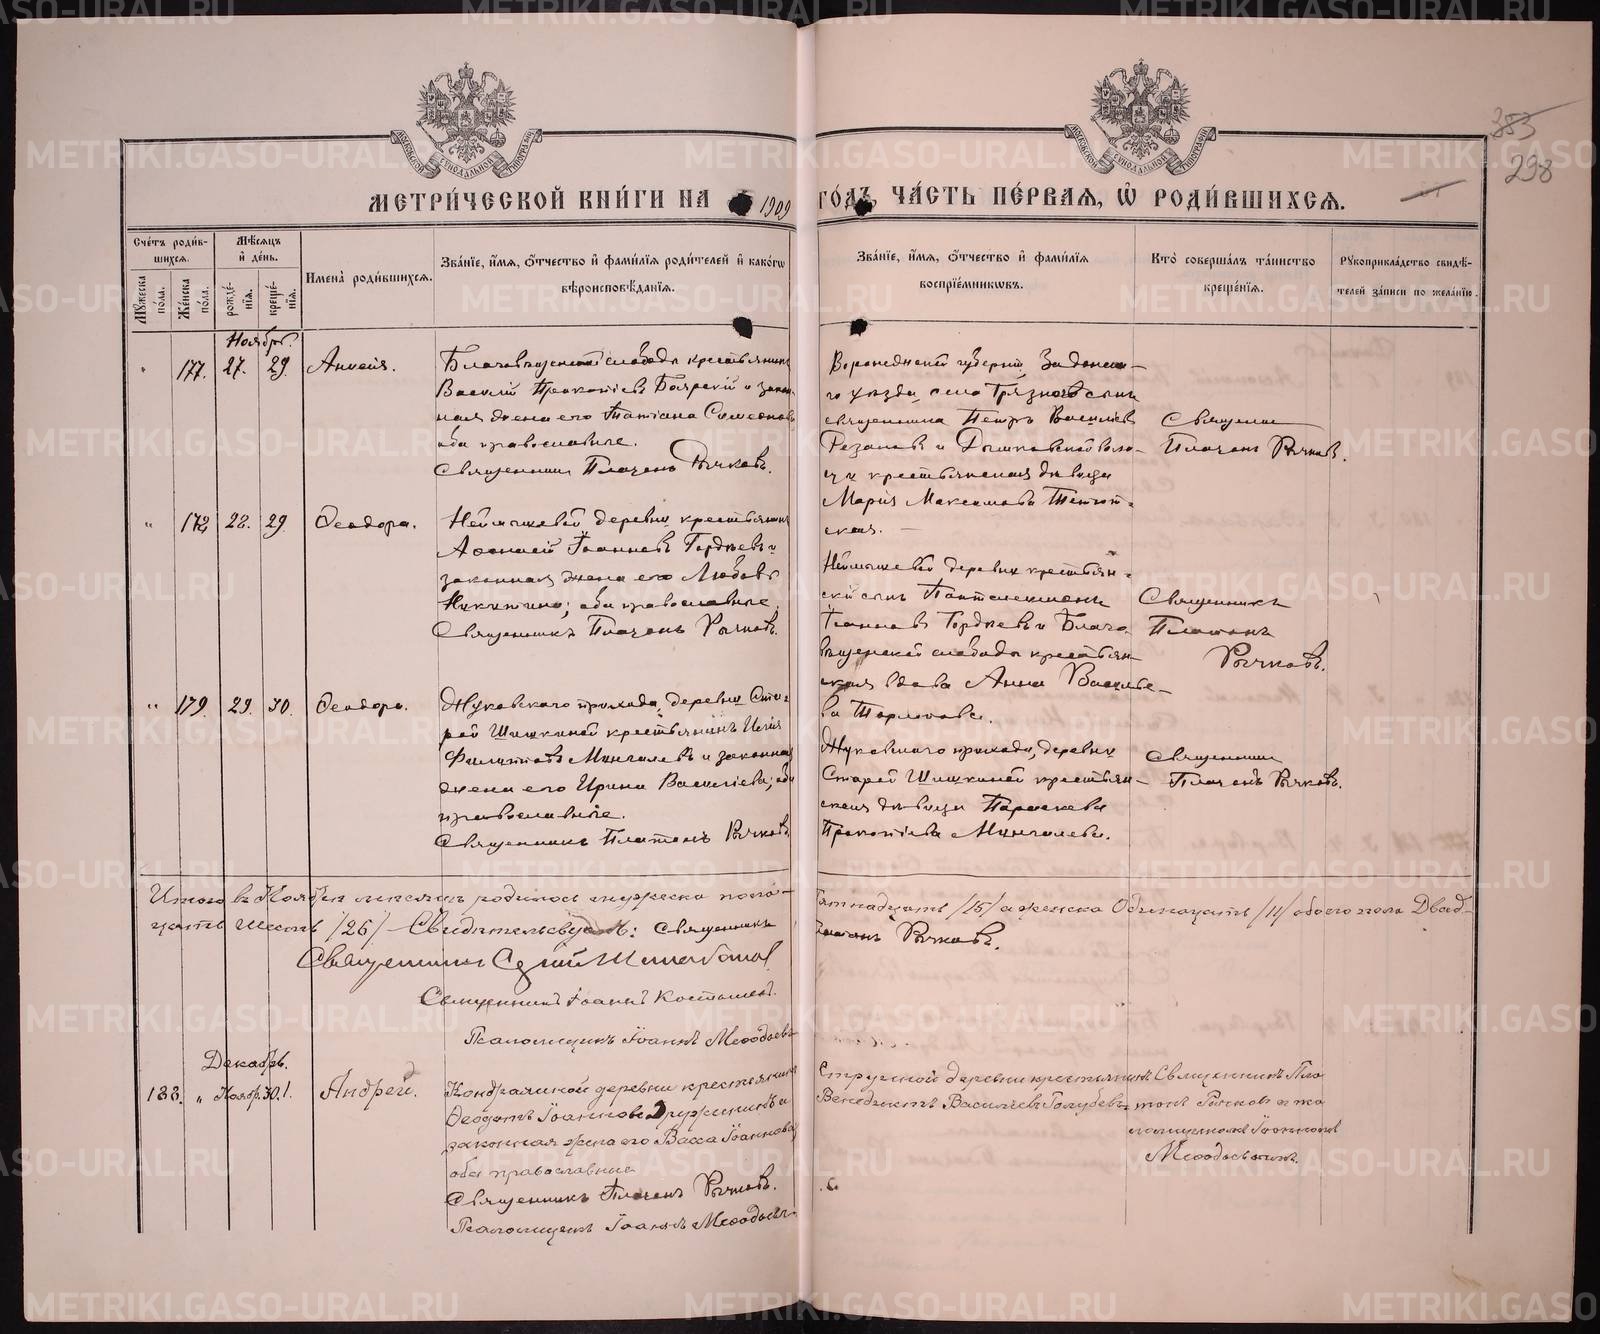 METRIKI.GASO-URAL.RU
353
298
МЕТРИ́ЧЕСКОЙ КНИ́ГИ НА 1909 ГОДЪ, ЧА́СТЬ ПЕ́РВАЯ, Ѽ РОДИ́ВШИХСЯ.
Сче́тъ роди́вшихся.
Мѣ́сяцъ и҆ де́нь.
Му́жеска по́ла.
Же́нска по́ла.
рожде́нїя.
креще́нїя.
И҆мена̀ роди́вшихся.
Зва́нїе, и҆́мя, ѻ҆́тчество и҆ фами́лїя роди́телей и҆ како́гѡ
вѣроисповѣ́данїя.
Зва́нїе, и҆́мя, ѻ҆́тчество и҆ фами́лїя
воспрїе́мникѡвъ.
Кто̀ соверша́лъ та́инство
креще́нїя.
Рꙋкоприкла́дство свидѣ́-
телей за́писи по жела́нїю.
Ноябрь.
177. 27. 29.
слобода крестьянинъ
Василій Прокопіевъ Боярскій и закон-
ная жена его Татіана Симеонова
оба православные.
Священникъ Платонъ Рычковъ.
Воронежской губерніи, Задонска-
го уѣзда, села Грязного сынъ
священника Петръ Василіевъ
крестьянская дѣвица
Марія Максимова
ская.
Священникъ
Платонъ Рычковъ.
" 178 28. 29 Ѳеодора.
деревни крестьянинъ
Іоанновъ Гордѣевъ и
законная жена его Любовь
Никитина; оба православные.
Священникъ Платонъ Рычковъ.
деревни крестьян-
скій сынъ Пантелеимонъ
Іоанновъ Гордѣевъ и Благо-
вѣщенской слободы крестьян-
ская вдова Анна Василье-
ва
Священникъ
Платонъ
Рычковъ.
" 179. 29. 30. Ѳеодора.
Жуковскаго прихода, деревни Ста-
рой Шишкиной крестьянинъ Илія
Филипповъ Мингалевъ и законная
жена его Ирина Василіева; оба
православные.
Священникъ Платонъ Рычковъ
Жуковскаго прихода, деревни
Старой Шишкиной крестьян-
ская дѣвица Параскева
Прокопіева Мингалева.
Священникъ
Платонъ Рычковъ.
Итого въ Ноябрѣ мѣсяцѣ родилось мужеска пола Пятнадцать /15/ а женска Одинацать /11/ обоего пола Двад-
цать Шесть /26/ Свидѣтельствуемъ: Священникъ Платонъ Рычковъ.
Священникъ Сергій
Священникъ Іоаннъ Костылевъ.
Псаломщикъ Іоаннъ Меѳодьевъ
Декабрь.
188. " Ноябр. 30. 1. Андрей.
деревни крестьянинъ
Ѳеодотъ Іоанновъ Дружининъ и
законная жена его Васса Іоаннова
оба православные
Священникъ Платонъ Рычковъ.
Псаломщикъ Іоаннъ Меѳодьевъ
деревни крестьянинъ
Венедиктъ Васильевъ Голубевъ
Священникъ Пла-
тонъ Рычковъ и пса-
ломщикомъ Іоанномъ
Меѳодьевымъ.